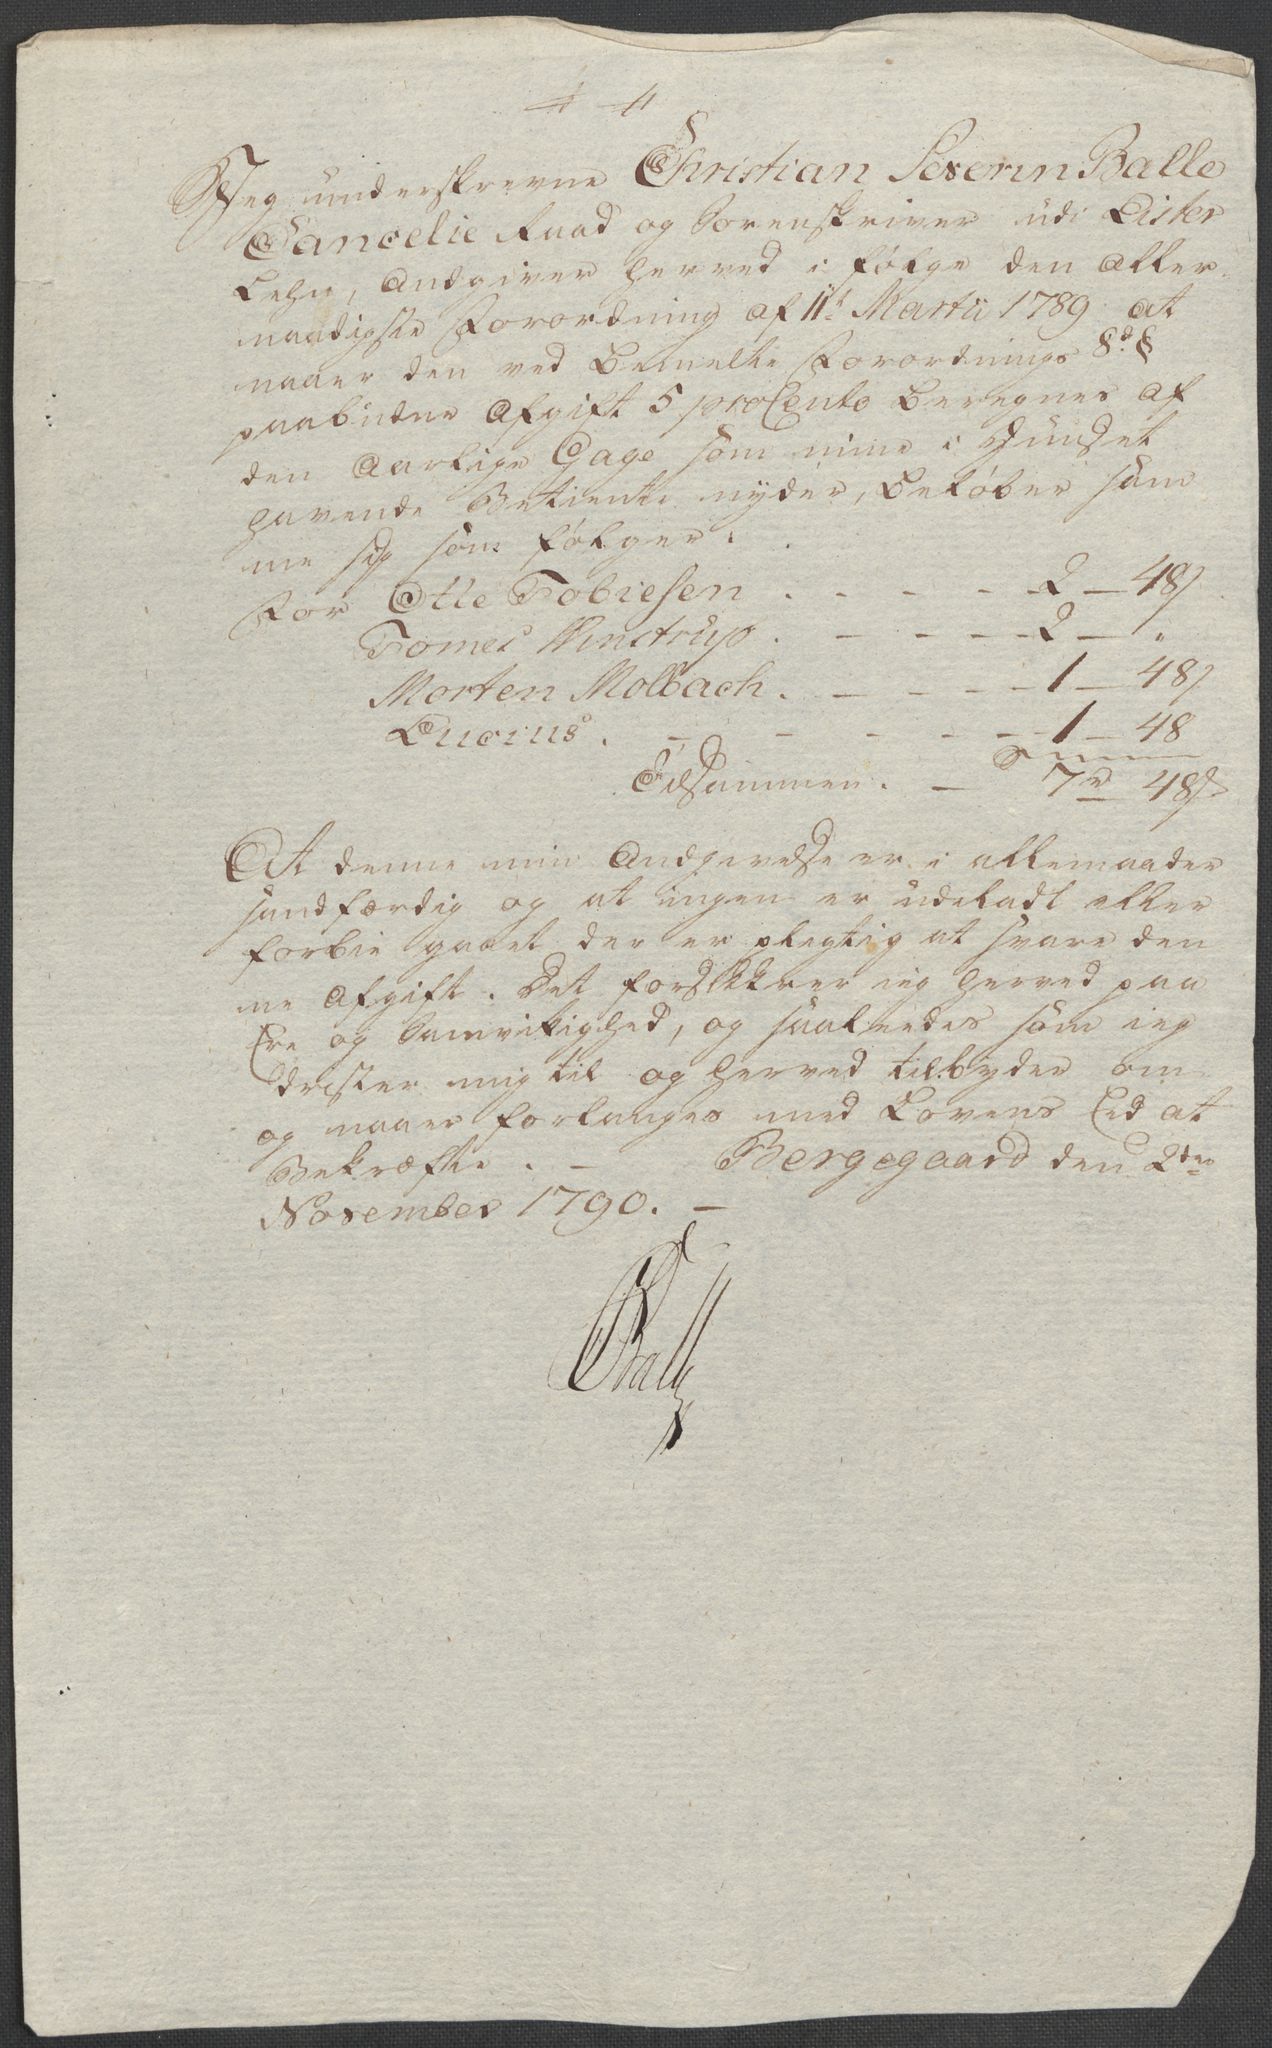 Jeg underskrevne Christian Severin Balle
Cancelie Raad og Sorenskriver udi Lister
Lehn, andgiver herved i følge den aller
naadigste Forordning af 11t Martii 1789 at
naaer den ved bemelte Forordnings 8d §
paabudne Afgift 5 proCento beregnes af
den aarlige Gage som mine i Huuset
havende Betiente nyder, beløber sam
me sig som følger.
For Otte Tobiesen . - - - - 2 - 48s
Tomes Winstrup . - - - - 2 - "
Morten Molbach . - - - - 1 - 48s
Lucius . - - - - - 1 - 48
Tilsammen . - 7r 48s
At denne min Andgivelse er i allemaader
sandfærdig og at ingen er udeladt eller
forbie gaaet der er plegtig at svare den
ne Afgift. Det forsikkrer ieg herved paa
Ere og Samvitighed, og saaledes som ieg
drister mig til og herved tilbyder om
og naaer forlanges med Lovens Eed at
Bekræfte. - Bergegaard den 2den
November 1790. -
Balle